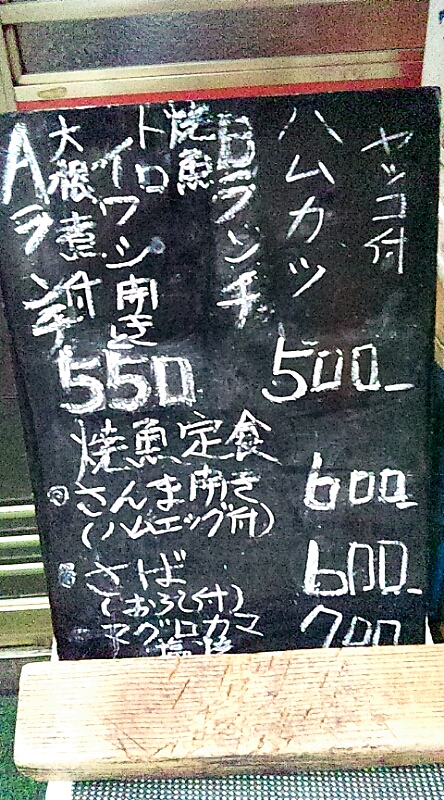 Aランチ
焼魚
トロ
イワシ開き
大根煮付
550
Bランチ
ハムカツ
ヤッコ付
500-
焼魚定食
さんま開き 600-
(ハムエッグ付)
さば 600-
(おろし付)
マグロカマ 700